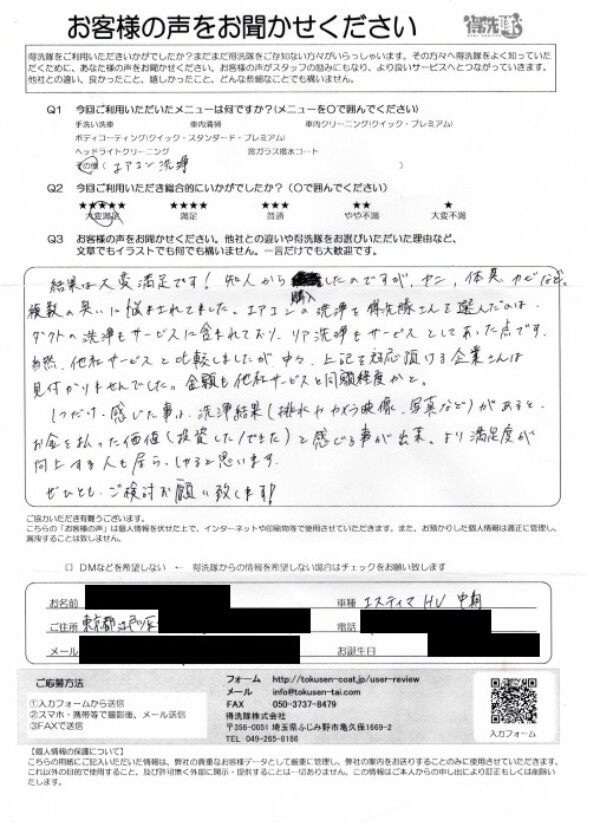 お客様の声をお聞かせください
得洗隊
得洗隊をご利用いただきいかがでしたか?まだまだ得洗隊をご存知ない方々がいらっしゃいます。その方々へ得洗隊をよく知っていた
だくために、あなた様の声をお聞かせください。お客様の声がスタッフの励みにもなり、より良いサービスへとつながっていきます。
他社との違い、良かったこと、嬉しかったこと、どんな些細なことでも構いません。
Q1 今回ご利用いただいたメニューは何ですか?(メニューを〇で囲んでください)
手洗い洗車 車内清掃 車内クリーニング(クイック・プレミアム)
ボディコーティング(クイック・スタンダード・プレミアム)
ヘッドライトクリーニング 窓ガラス撥水コート
その他(エアコン洗浄 )
Q2 今回ご利用いただき総合的にいかがでしたか?(〇で囲んでください)
★★★★★ ★★★★ ★★★ ★★ ★
大変満足 満足 普通 やや不満 大変不満
Q3 お客様の声をお聞かせください。他社との違いや得洗隊をお選びいただいた理由など、
文章でもイラストでも何でも構いません。一言だけでも大歓迎です。
結果は大変満足です! 知人から購入したのですが、ヤニ、体臭、カビなど。
複数の臭いに悩まされてました。エアコンの洗浄を得洗隊さんを選んだのは、
ダクトの洗浄もサービスに含まれており、リア洗浄もサービスとしてあった点です。
当然、他社サービスと比較しましたが、中々、上記を対応頂ける企業さんは
見付かりませんでした。金額も他社サービスと同額程度かと。
1つだけ、感じた事は、洗浄結果(排水やカメラ映像、写真など)があると、
お金を払った価値(投資した/できた)と感じる事が出来、より満足度が
向上する人も居らっしゃると思います。
ぜひとも、ご検討お願い致します!
ご協力いただき有難うございます。
こちらの「お客様の声」は個人情報を伏せた上で、インターネットや印刷物等で使用させていただきます。また、お預かりした個人情報は適正に管理し、
漏洩することは致しません。
□ DMなどを希望しない ← 得洗隊からの情報を希望しない場合はチェックをお願い致します
お名前 車種 エスティマ HV 中期
ご住所 東京都江戸川区 電話
メール お誕生日
ご応募方法
①入力フォームから送信
②スマホ・携帯等で撮影後、メール送信
③FAXで送信
フォーム http://tokusen-coat.jp/user-review
メール info@tokusen-tai.com
FAX 050-3737-8479
得洗隊株式会社
〒356-0051 埼玉県ふじみ野市亀久保1669-2
TEL 049-265-8186
入力フォーム
【個人情報の保護について】
こちらの用紙にご記入いただいた情報は、弊社の貴重なお客様データとして厳重に管理し、弊社の案内をお送りすることのみに使用させていただきます。
これ以外の目的で使用すること、及び許可無く外部に開示・提供することは一切ありません。この情報はご本人からの申し出により訂正もしくは削除い
たします。